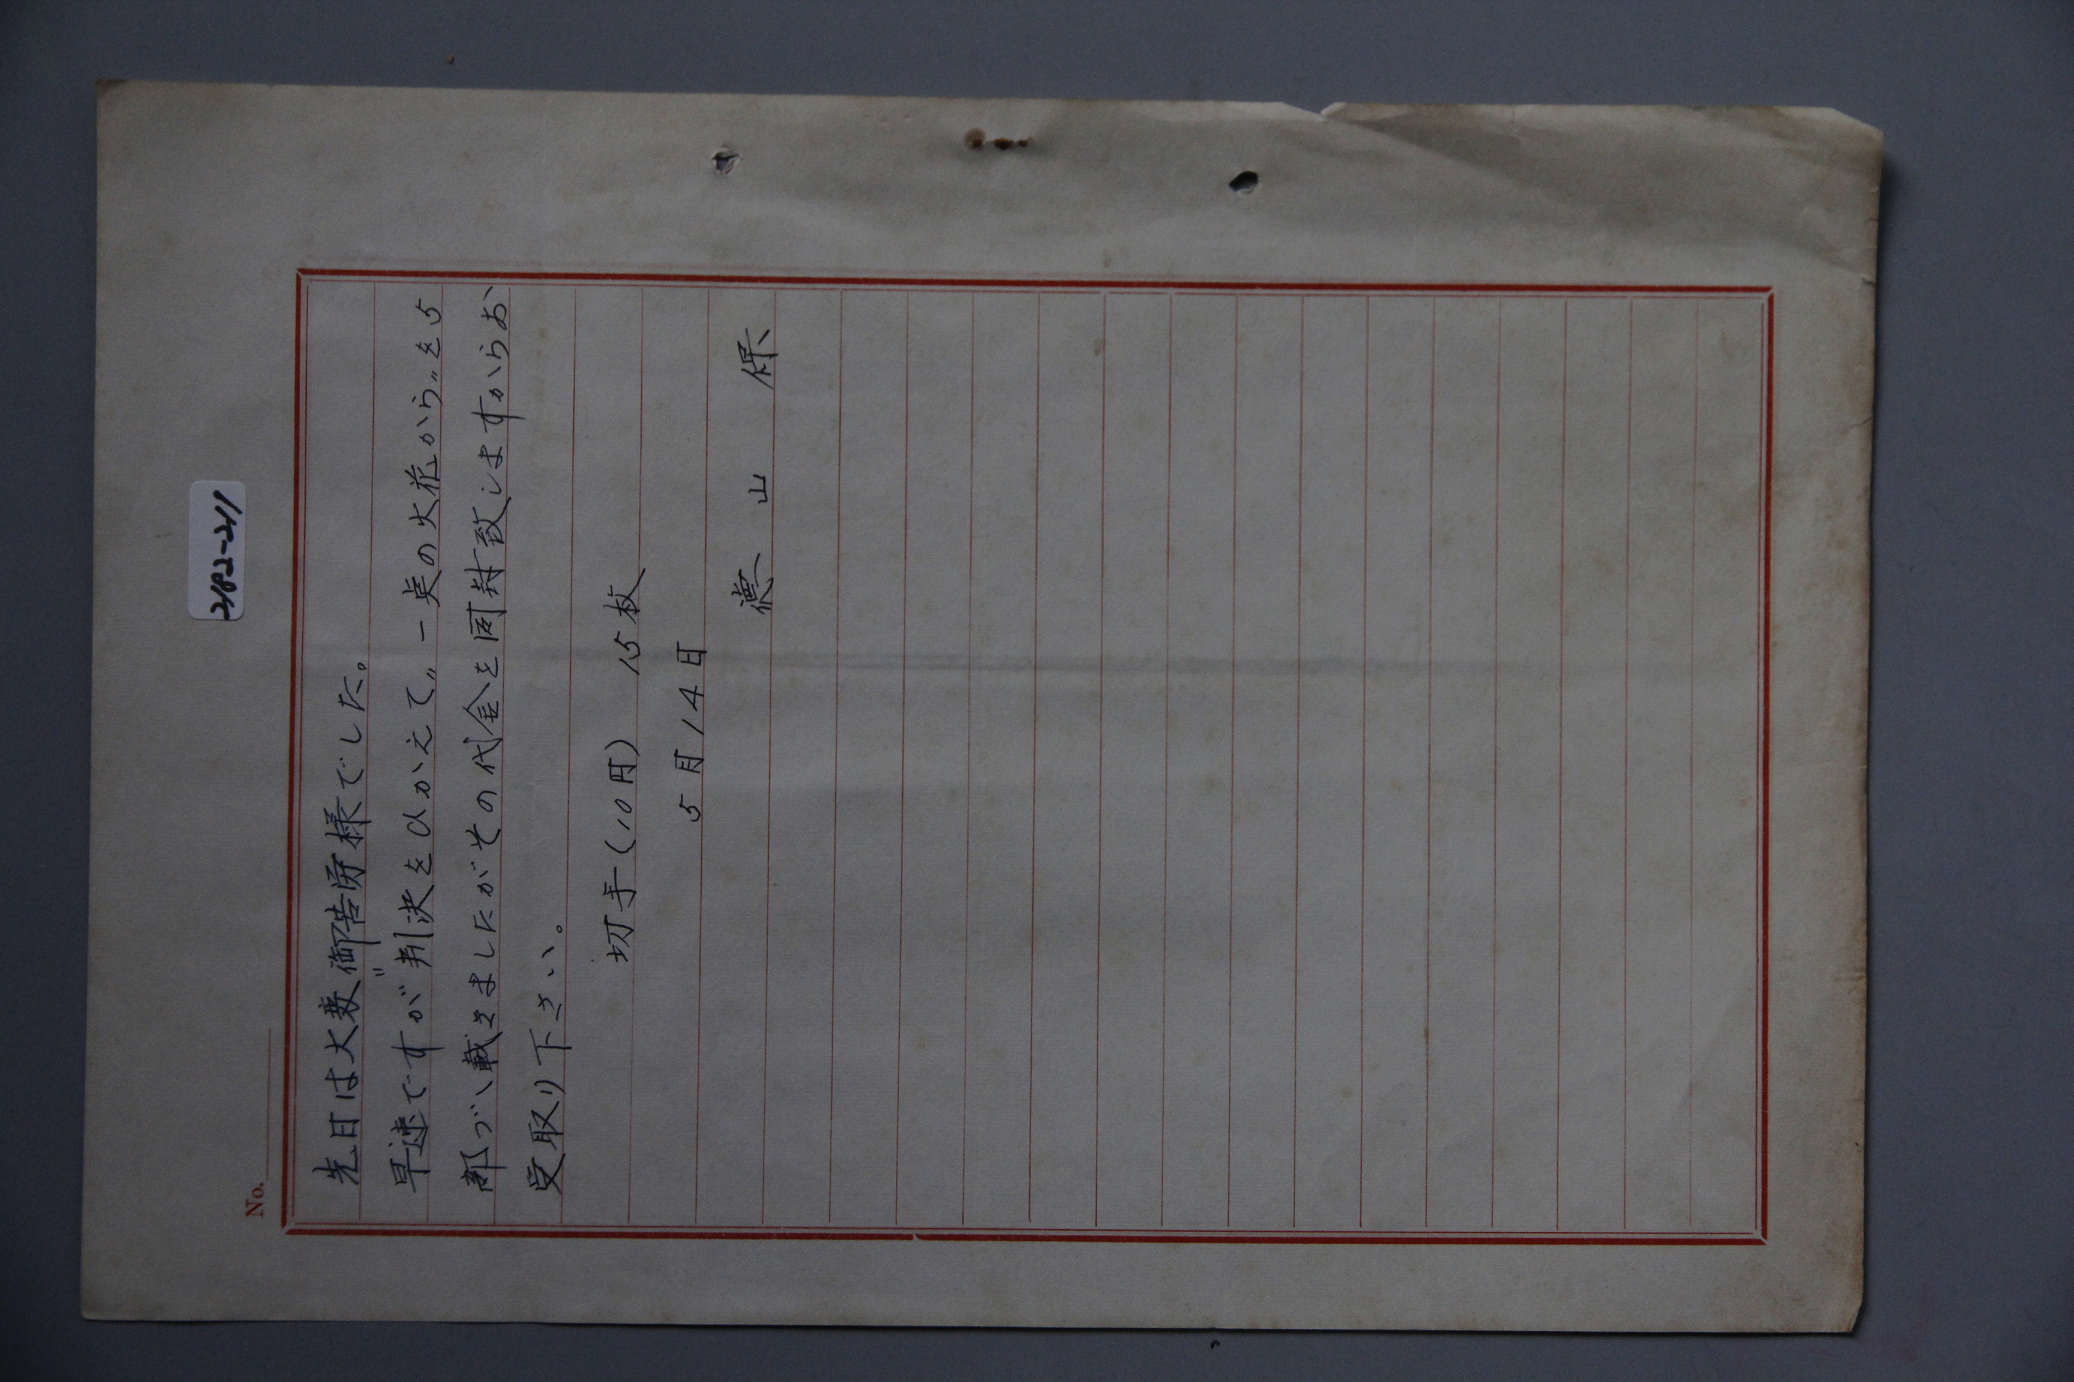 2182-211
No.
先日は大変御苦労様でした。
早速ですが〃判決をひかえて〃一点の火花から〃を5
部づゝ載きましたがその代金を同封致しますからお
受取り下さい。
切手(10円) 15枚
5月14日
徳山 保